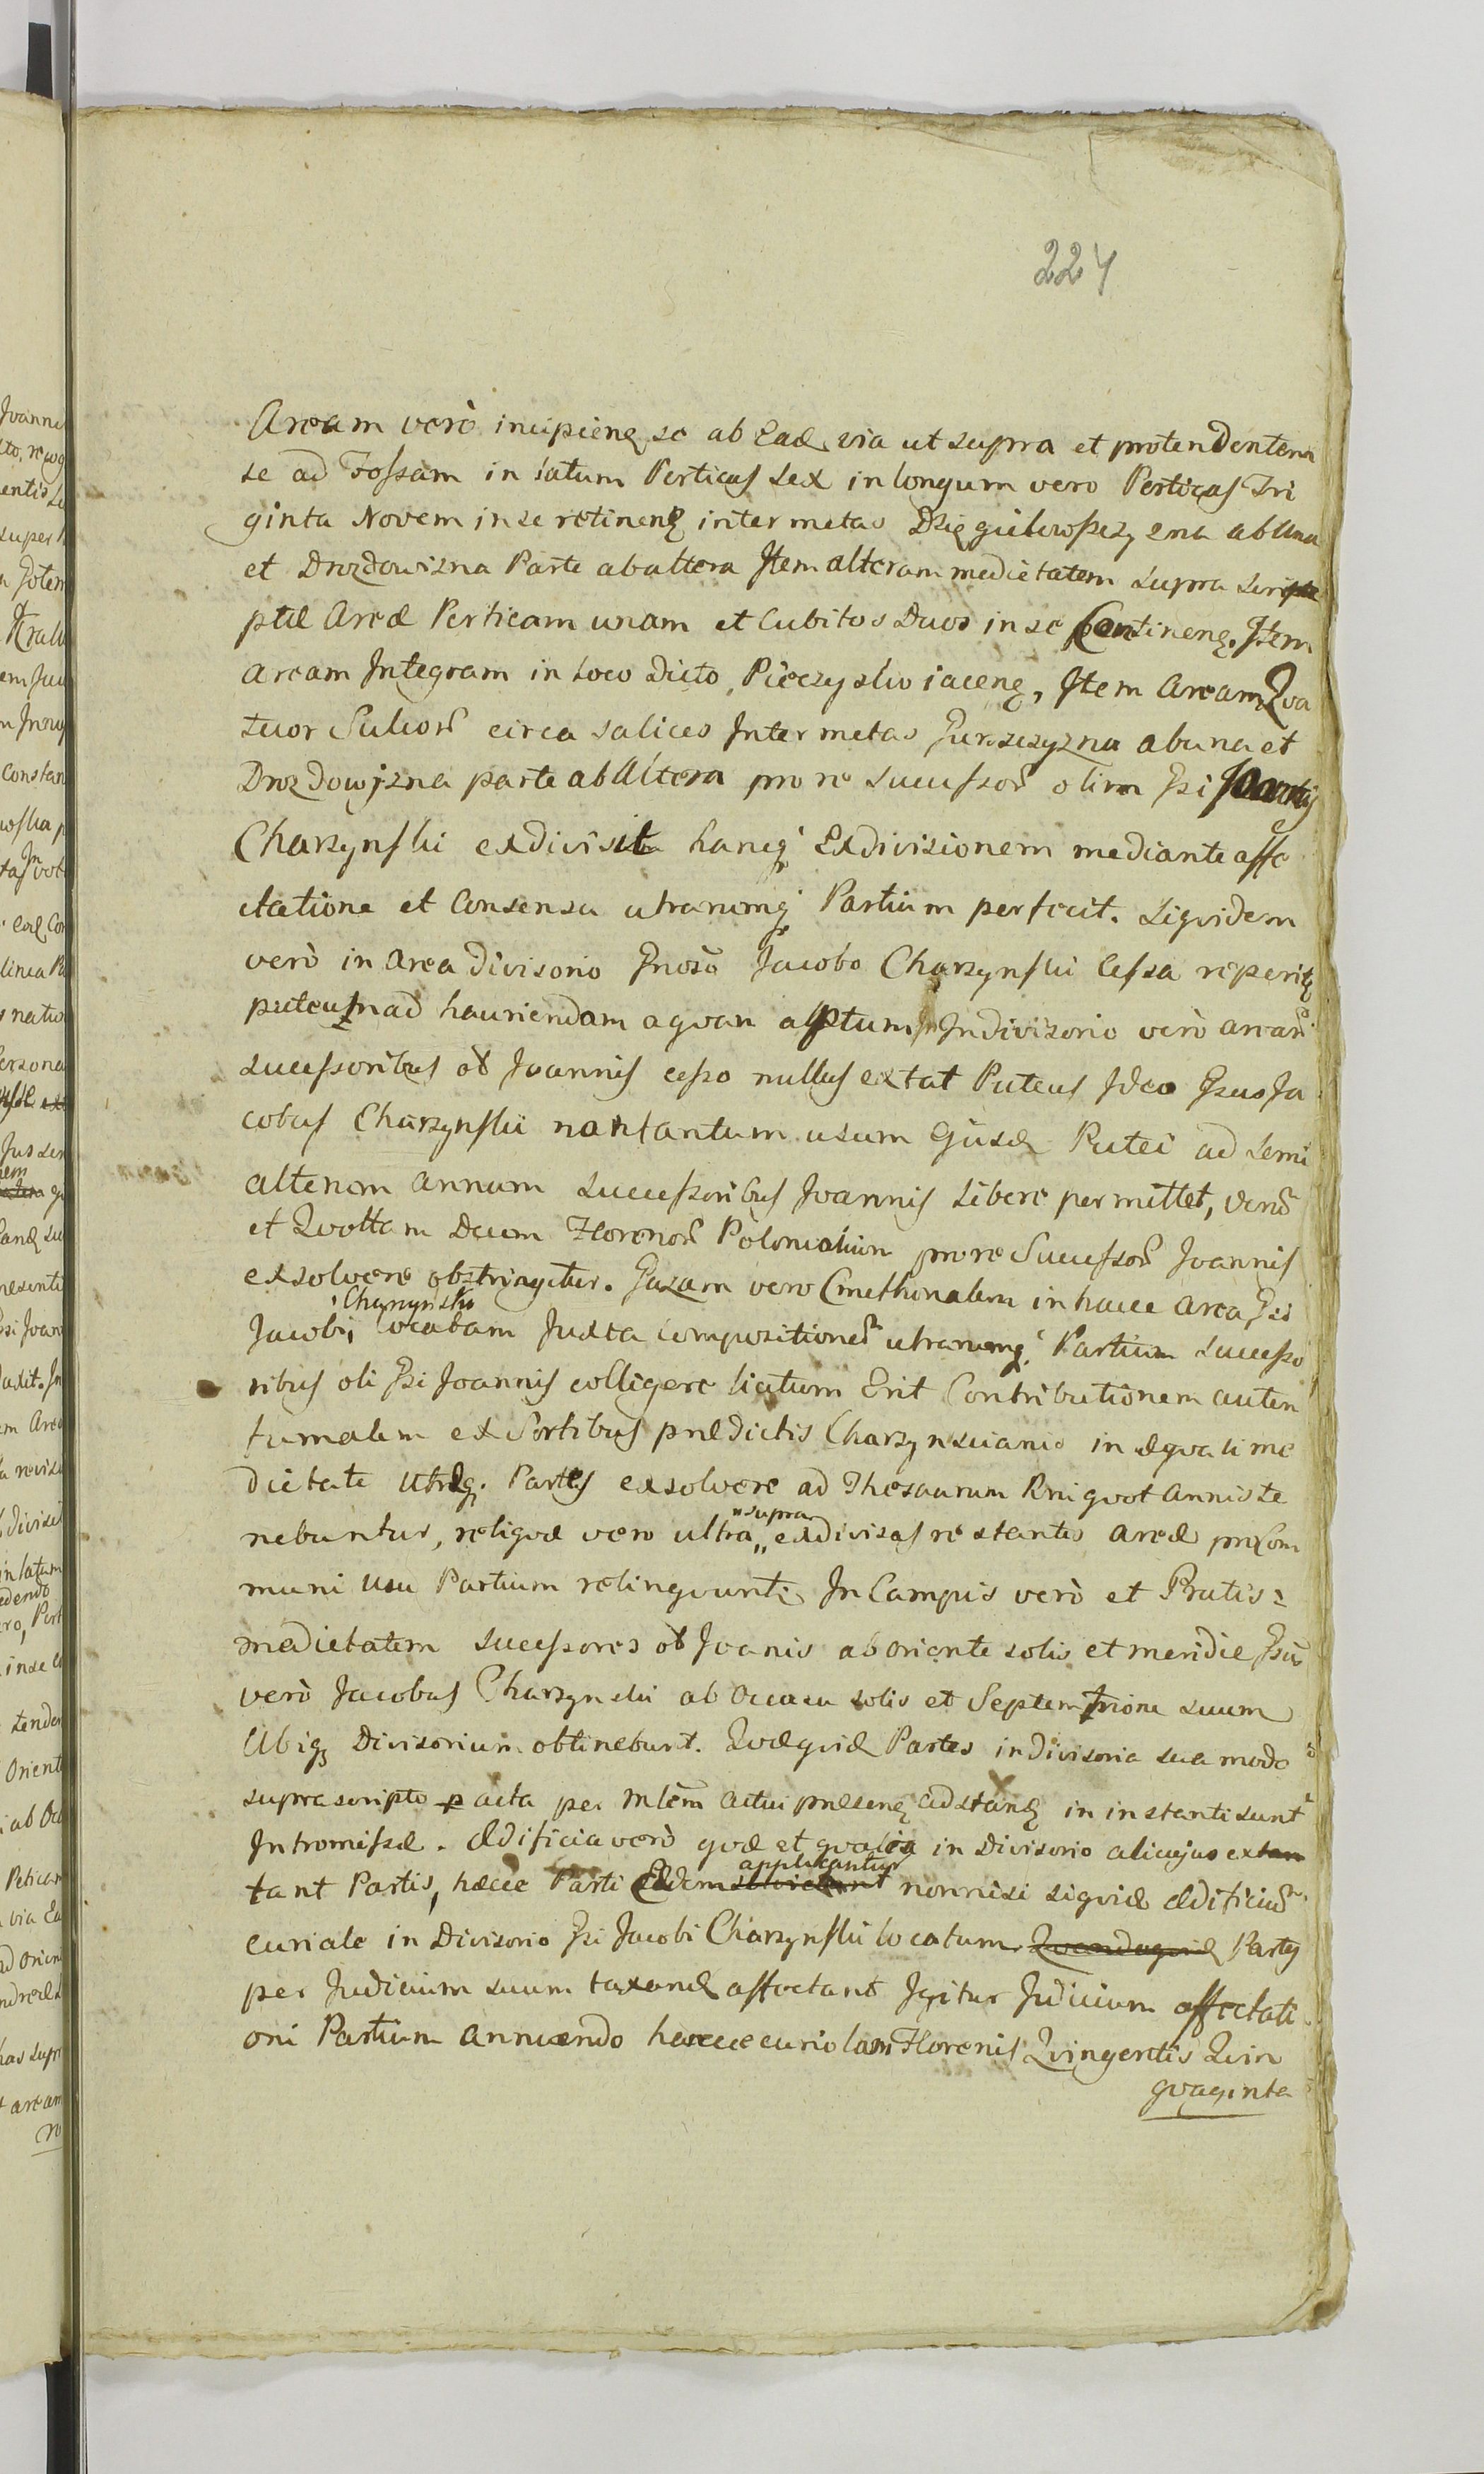 224
Aream verò incipienȩ se ab Ead via ut supra et protendentem
se ad Fossam in latum Perticas sex in longum vero Perticas Tri
ginta Novem in se retinenȩ inter metas Dzięgielowszczyzna ab una
et Drozdowizna Parte ab altera Item alteram medietatem supra scri
ptæ Areæ Perticam unam et Cubitos Duos in se Continenȩ. Item
aream Integram in Loco dicto Pieczysko iacenȩ, Item Aream Qva
tuor Sulcorũ circa salices Inter metas Gurszczyzna ab una et
Drozdowizna parte ab Altera pro re Successorũ olim Gsi Joannis
Charzynski exdivisit hancq́ Exdivisionem mediante affe
ctatione et Consensu utrarumq́ Partium perfecit. Siqvidem
verò in Area divisorio Gnoso Jacobo Charzynski Cessa reperitȩ
puteum ad hauriendam aqvam aptum In divisorio verò arearũ
successoribus ol Joannis cesso nullus extat Puteus Ideo Gsus Ja
cobus Charzynski non tantum usum Ejusd Putei ad semi
alterum annum successoribus Joannis libere permittet, verũ
et Qvottam Decem Florenorũ Polonialium pro re Successorũ Joannis
exsolvere obstringitur. Gazam vero Cmethonalem in hacce Area Gsi
Jacobi Charzynski locatam Juxta compositionẽ utrarumq́ Partium successo
ribus oli Gsi Joannis colligere licitum Erit Contributionem autem
fumalem ex Sortibus prædictis Charzynscianis in æqvali me
dietate Utræq. Partes exsolvere ad Thesaurum Rni qvot annis te
nebuntur, reliqvæ vero ultra „supra exdivisas restantes areæ pro Com
muni usu Partium relinqvuntȩ In Campis verò et Pratis
medietatem successores ol Joanis ab oriente solis et meridie Gsus
verò Jacobus Charzynski ab occasu solis et Septemtrione suum
Ubiqȝ Divisorium obtinebunt. Qvæqvid Partes in divisoria sua modo
suprascripto pacta per Mlem actui præsenȩ adstanȩ in instanti sunt
Intromissæ. Ædificia verò qvæ et qvalia in Divisorio alicujus ex
tant Partis, hæcce Parti Eidem applicantur nonnisi siqvid ædificiũ
curiale in Divisorio Gsi Jacobi Charzynski locatum Partes
per Judicium suum taxand affectant Igitur Judicium affectati
oni Partium annuendo hancce curiolam Florenis Qvingentis Qvin
qvaginta